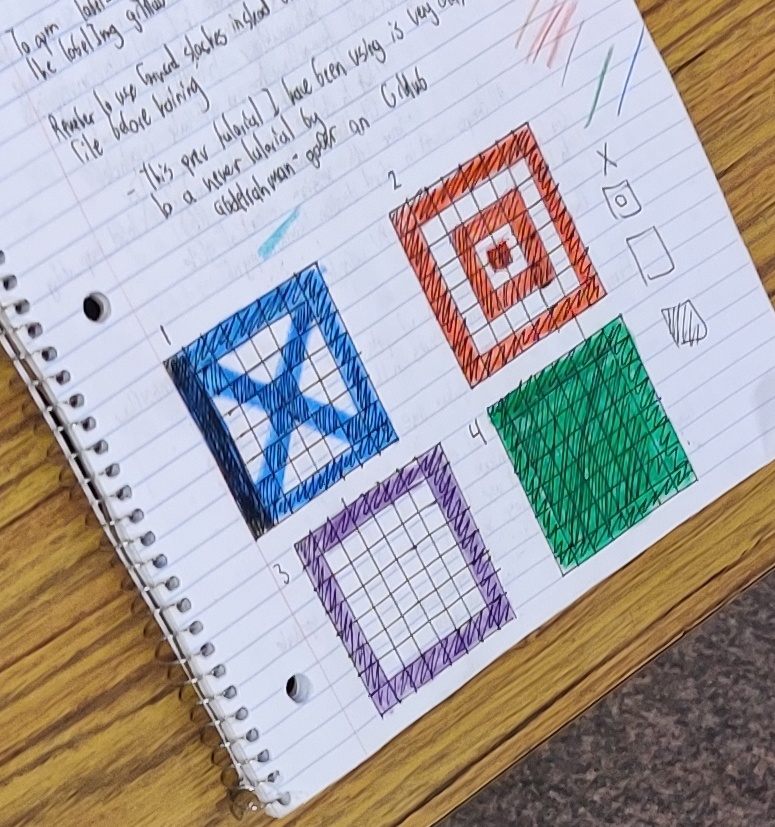 the labeling github
to use forward slashes instead
file before training
- This prev tutorial I have been using is very
to a newer tutorial by
abdelrahman-gaber on GitHub
1
2
3
4
X